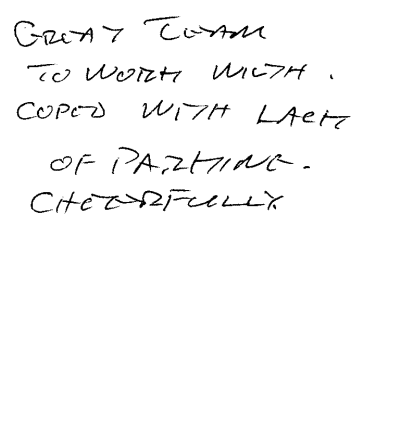 GREAT TEAM
TO WORK WITH.
COPED WITH LACK
OF PARKING.
CHEERFULLY